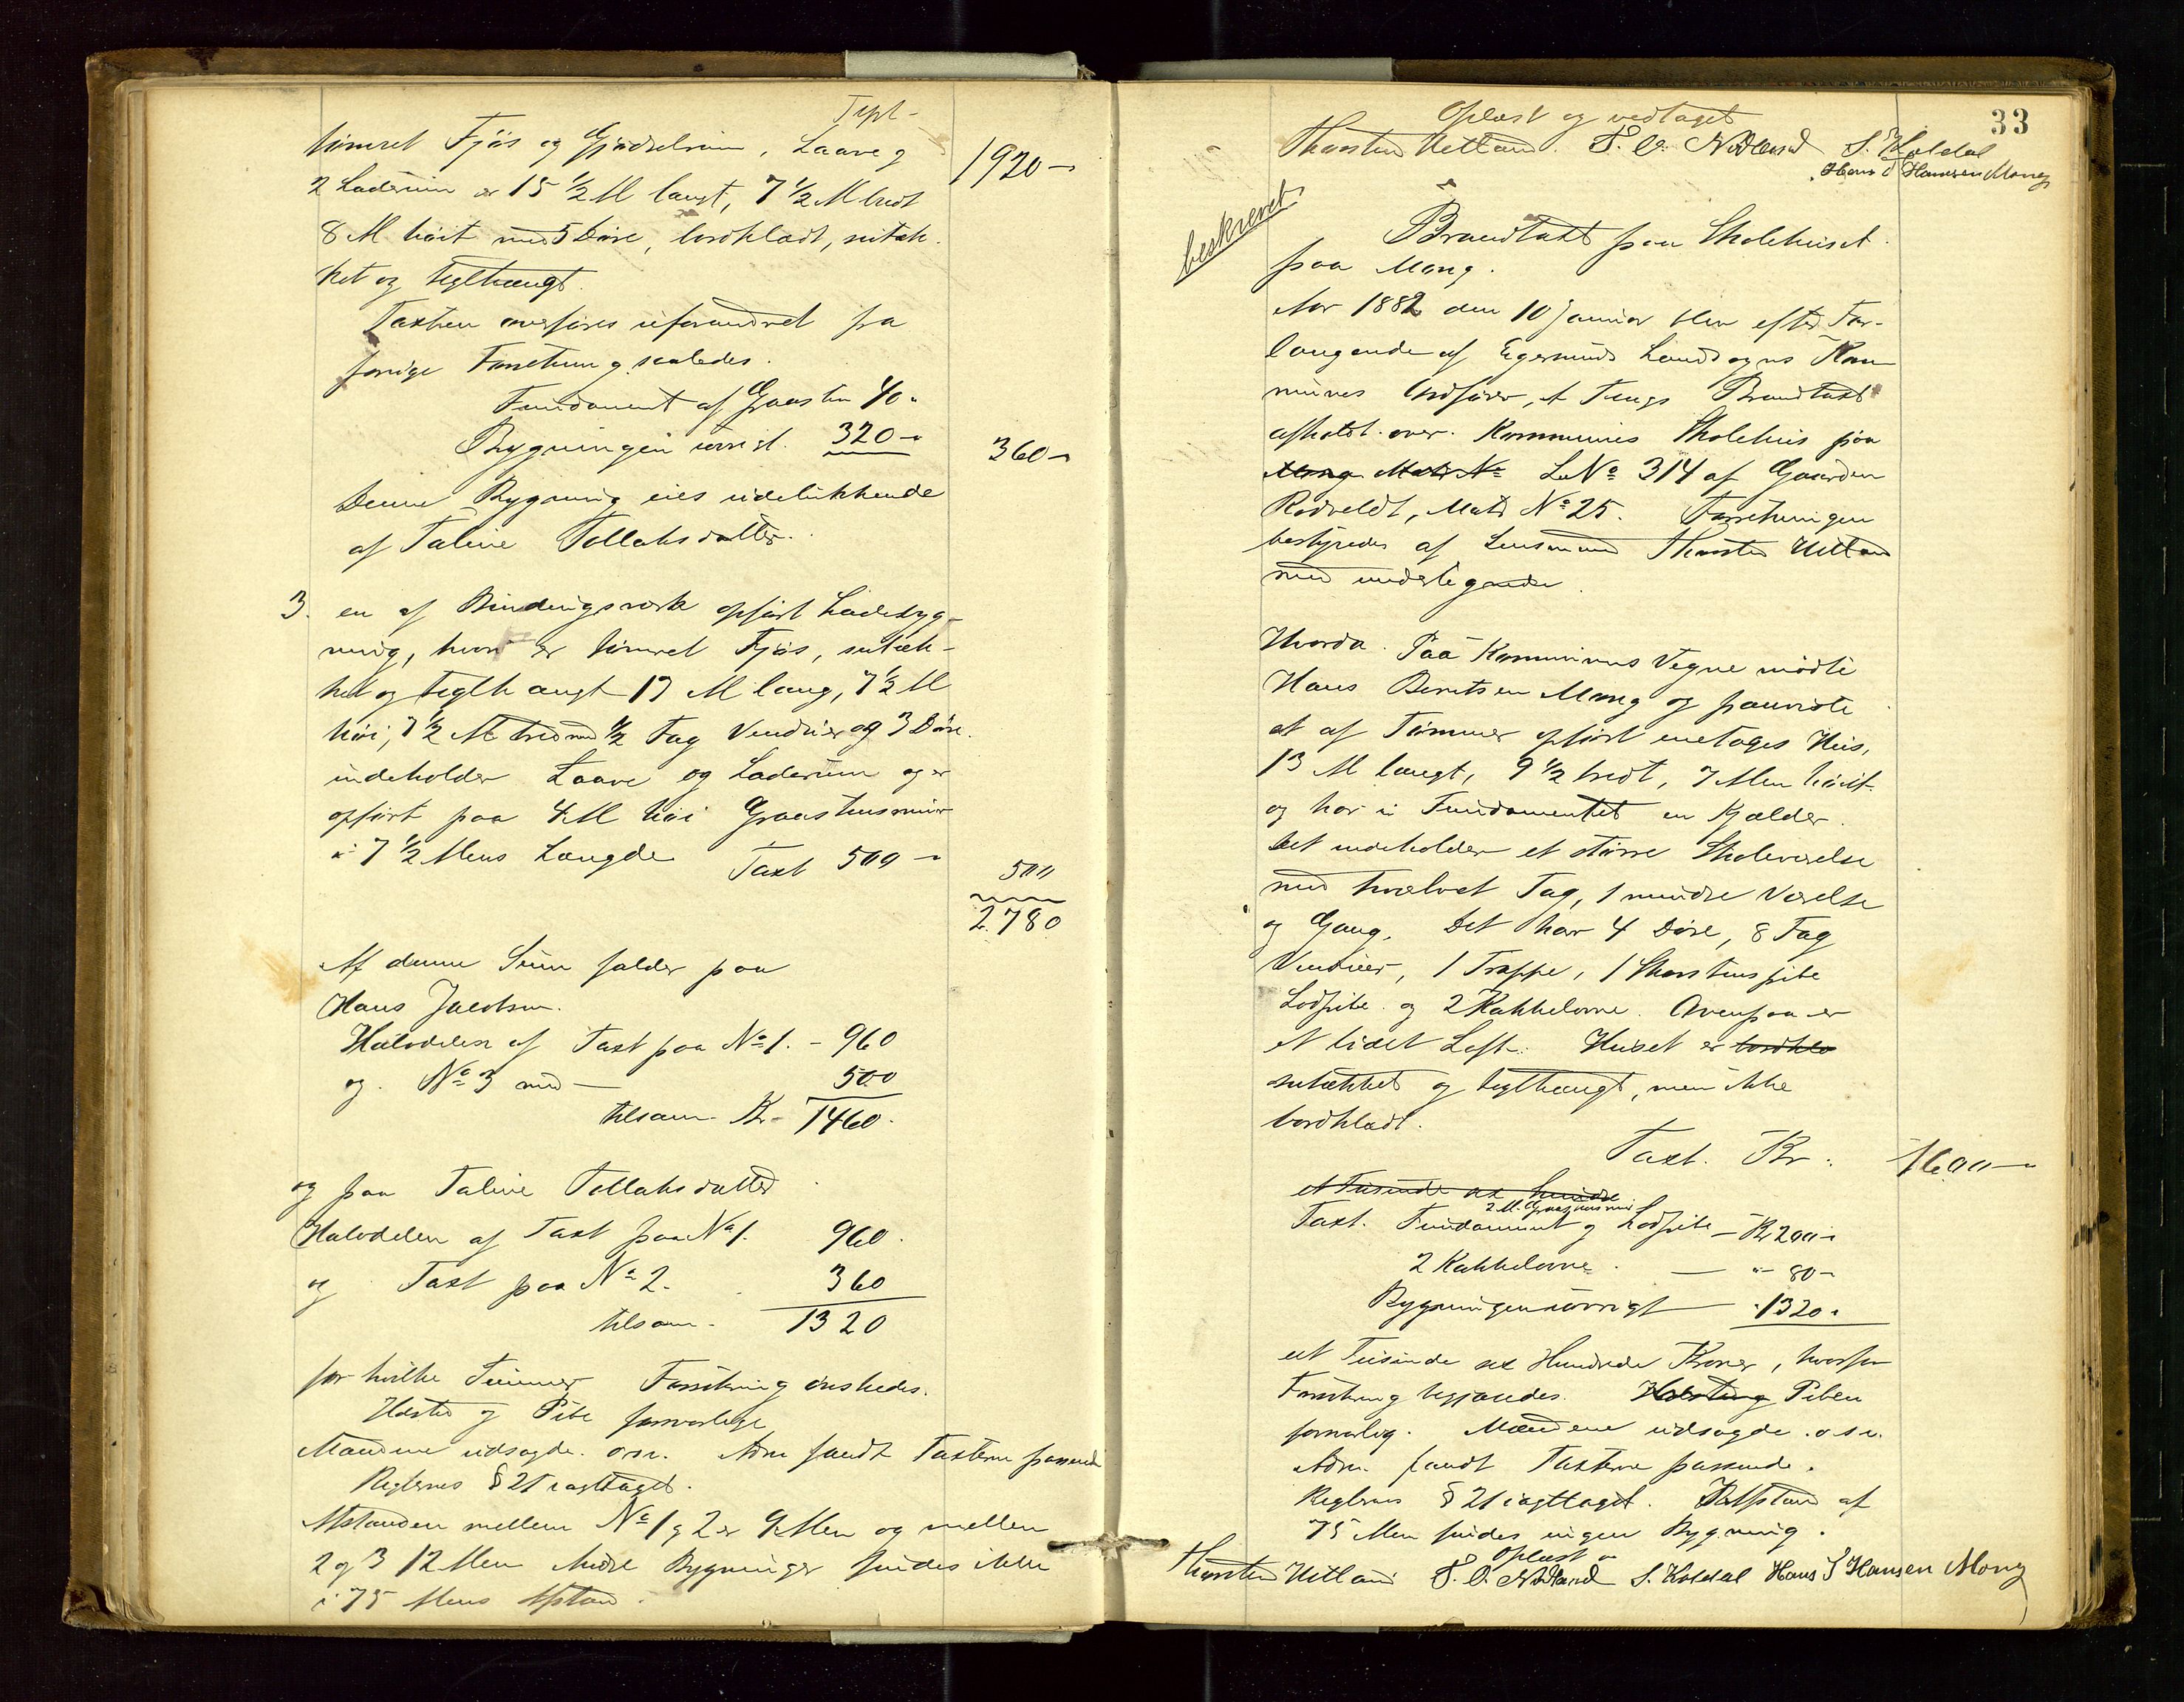 Tspt-
tømret Fjøs og Gjødselrum, Laave og
2 Laderum er 15 1/2 M langt, 7 1/2 M bredt
1920 -
8 M høit med 5 Døre, bordklædt, sutæk-
ket og teglhængt.
Taxten overføres uforandret fra
forrige Forretning saaledes.
Fundament af Graasten 40 -
Bygningen iøvrigt 320 -
360 -
Denne Bygning eies udelukkende
af Taline Tollaksdatter.
3. en af Bindingsværk opført Ladebyg-
ning, hvori er tømret Fjøs, sutæk-
ket og teglhængt 17 M lang, 7 1/2 M
høi, 7 1/2 M bred med 1/2 Fag Vinduer og 3 Døre.
indeholder Laave og Laderum og er
opført paa 4 M høi Graastensmur
i 7 1/2 Mens Længde Taxt 500 -
500
2780
Af denne Sum falder paa
Hans Jacobsen.
Halvdelen af Taxt paa No 1. - 960
og No 3 med - 500
tilsam. Kr - 1460.
og paa Taline Tollaksdatter
Halvdelen af Taxt paa No 1. 960.
og Taxt paa No 2. 360
tilsam - 1320
for hvilke Summer Forsikring ønskedes.
Ildsted og Pibe forsvarlige
Mændene udsagde o.s.v. Adm. fandt Taxterne passende
Reglernes § 21 iagttaget.
Afstanden mellem No 1 og 2 er 9 Men og mellem
2 og 3 12 Men Andre Bygninger findes ikke
i 75 Mens Afstand.
33
Oplæst og vedtaget
Thorsten Uetland. S. O. Nodland S. Koldal
Hans S Hansen Mong
beskrevet
Brandtaxt paa Skolehuset
paa Mong.
Aar 1882 den 10 Januar blev efter For-
langende af Egersunds Landsogns Kom-
munes Ordfører, et Tings Brandtaxt
afholdt over Kommunes Skolehus paa
Mong Matr No L.No 314 af Gaarden
Rødveldt, Matr No 25. Forretningen
bestyredes af Lensmand Thorsten Uetland
med undertegnede.
Hvorda. Paa Kommunens Vegne mødte
Hans Berntsen Mong og paaviste
et af Tømmer opført enetages Hus,
13 M langt, 9 1/2 bredt, 7 Men høit
og har i Fundamentet en Kjælder.
Det indeholder et større Skoleværelse
med hvælvet Tag, 1 mindre Værelse
og Gang. Det har 4 Døre, 8 Fag
Vinduer, 1 Trappe, 1 Skorstenspibe
Lodpibe og 2 Kakkelovne. Ovenpaa er
et lidet Loft. Huset er bordklæ
sutækket og teglhængt, men ikke
bordklædt.
Taxt. Kr. 1600 -
et Tusinde sex hundre
2 M. Graastensmur
Taxt. Fundament og Lodpibe - Kr 200 -
2 Kakkelovne - " - 80 -
Bygningen iøvrigt - " 1320 "
et Tusinde sex Hundrede Kroner, hvorfor
Forsikring begjæredes. Piben
forsvarlig. Mændene udsagde o.s.v.
Adm. fandt Taxterne passende.
Reglernes § 21 iagttaget. I Afstand af
75 Men findes ingen Bygning.
Oplæst
Thorsten Uetland S. O. Nodland S. Koldal Hans S Hansen Mong